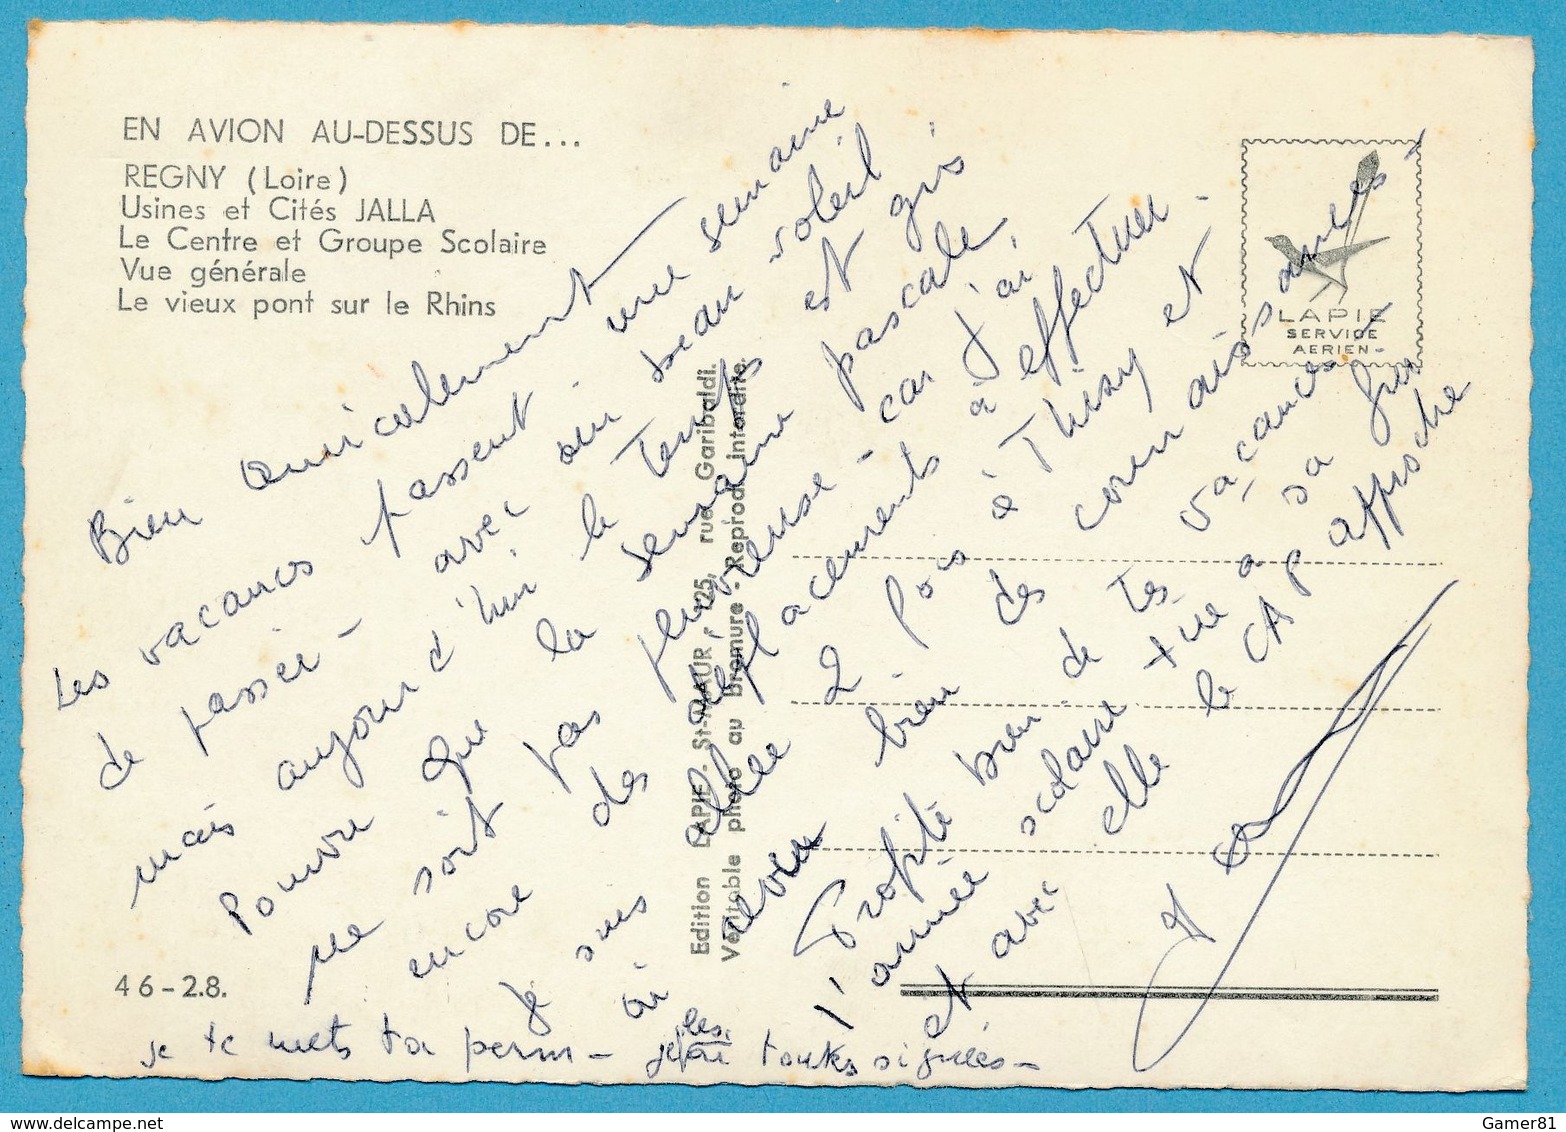 EN AVION AU-DESSUS DE...
REGNY (Loire)
Usines et Cités JALLA
Le Centre et Groupe Scolaire
Vue générale
Le vieux pont sur le Rhins
LAPIE
SERVICE
AERIEN
Edition LAPIE - St-MAUR, 125, rue Garibaldi.
Véritable photo au bromure - Reprod. Interdite.
46-28.
Bien amicalement
Les vacances passent - une semaine
de passée - avec un beau soleil,
mais aujourd'hui le temps est gris,
Pourvu que la semaine pascale
ne soit pas pluvieuse - car j'ai
encore des déplacements à effectuer -
Je suis allée 2 fois à Thizy et
ai revu bien des connaissances -
Profite bien de tes vacances -
l'année scolaire tire a sa fin
et avec elle le CAP approche
je te mets ta perm - je les ai toutes signées -
Gamer81